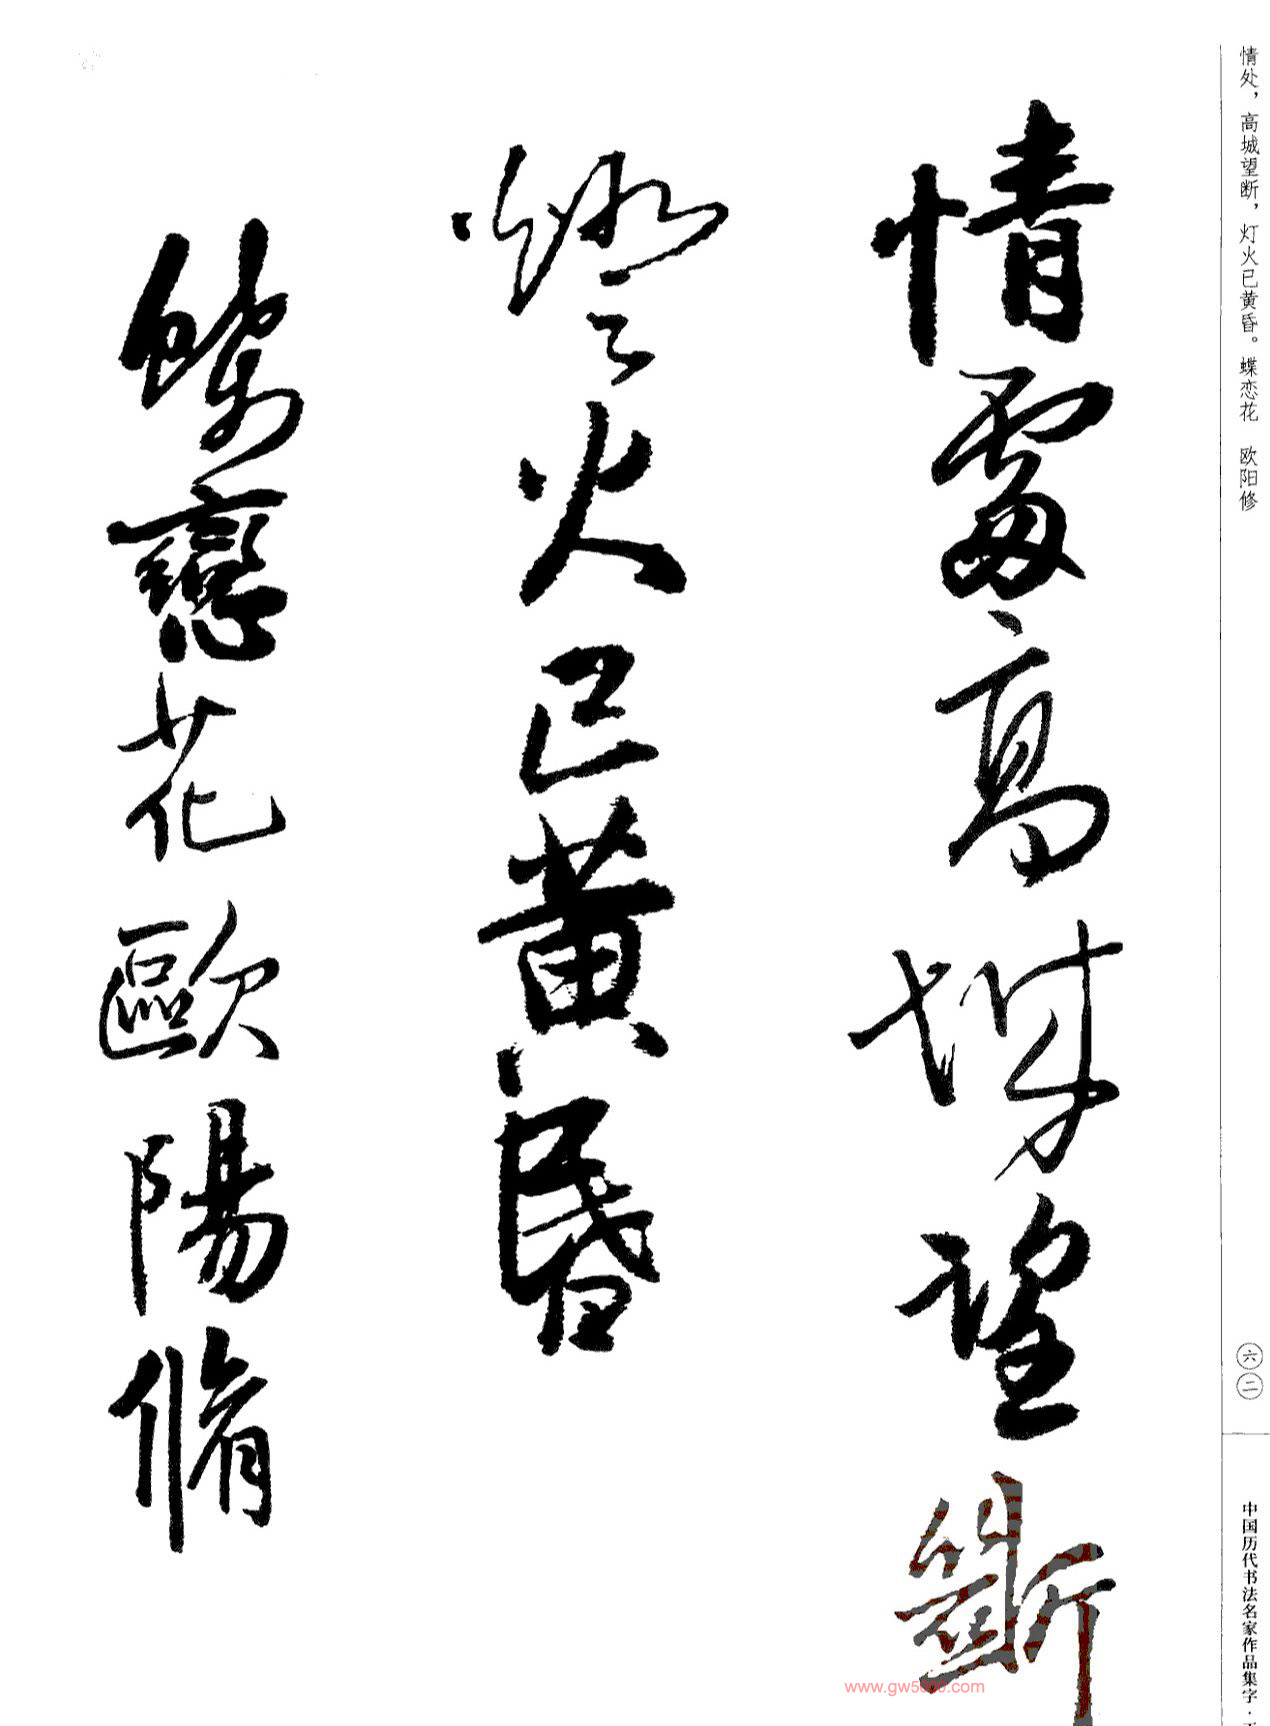 情处，高城望断，灯火已黄昏。蝶恋花 欧阳修
六二
中国历代书法名家作品集字·
情處高城望斷
燈火已黃昏
蝶戀花歐陽脩
www.gw5000.com